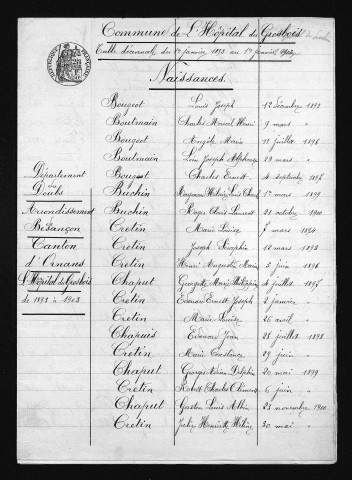 Commune de L'Hôpital du Grosbois
Table décennale du 1er janvier 1893 au 1er janvier
Naissances.
Bougeot Louis Joseph 12 décembre 1893
Boulmain Charles Marcel Henri 9 mars "
Bougeot Angèle Marie 11 juillet 1896
Boulmain Léon Joseph Alphonse 29 mars "
Bougeot Charles Ernest 4 septembre
Département
du
Doubs
Buchin Louis 1er mars 1899
Arrondissement
Buchin Roger Louis Laurent 21 octobre 1900
Besançon
Cretin Marie Louise 7 mars 1894
Canton
Cretin Joseph Séraphin 12 mars 1893
d'Ornans
Cretin Henri Augustin Marie 5 juin 1896
L'Hôpital du Grosbois
Chaput Georgette Marie Philippine 4 juillet
de 1893 à 1903
Cretin Edouard Ernest Joseph 2 janvier
Cretin Marie 26 avril "
Chapuis Edouard Jean 28 juillet 1898
Cretin Marie 29 juin "
Chaput Georges Adrien Delphin 20 mai 1899
Cretin Robert Charles Clément 6 juin "
Chaput Gaston Louis Albin 23 novembre 1900
Cretin Henriette 30 mai "